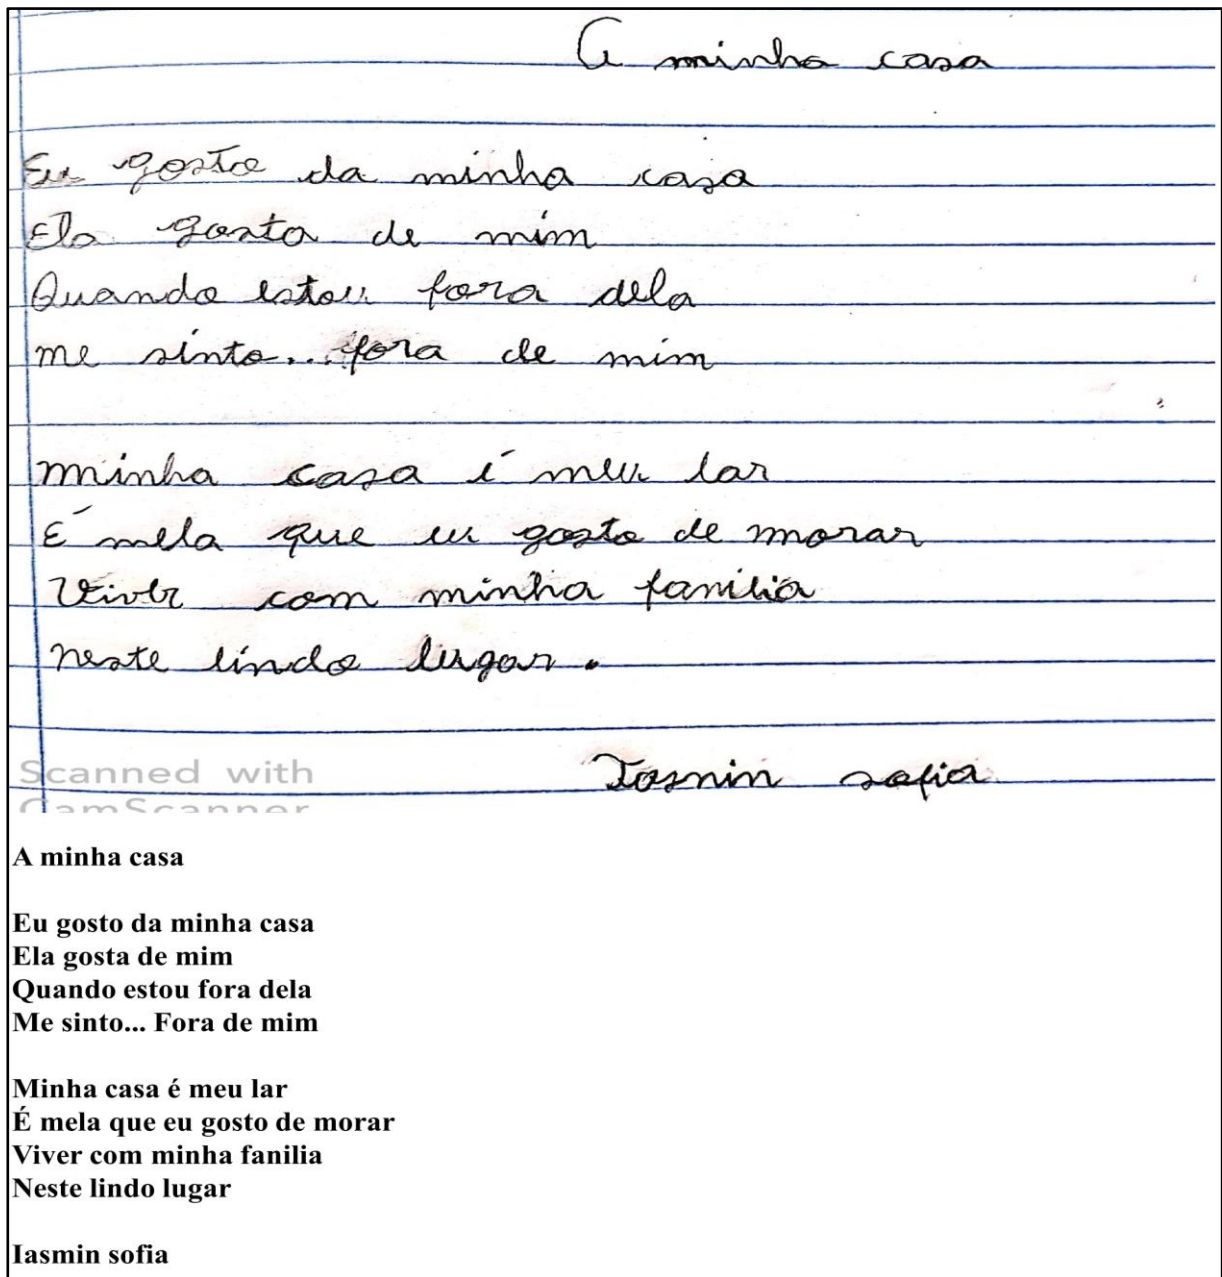 A minha casa
Eu gosto da minha casa
Ela gosta de mim
Quando estou fora dela
me sinto... fora de mim
minha casa é meu lar
É mela que eu gosto de morar
Viver com minha fanilia
neste lindo lugar.
Iasmin sofia
Scanned with
CamScanner
A minha casa
Eu gosto da minha casa
Ela gosta de mim
Quando estou fora dela
Me sinto... Fora de mim
Minha casa é meu lar
É mela que eu gosto de morar
Viver com minha fanilia
Neste lindo lugar
Iasmin sofia